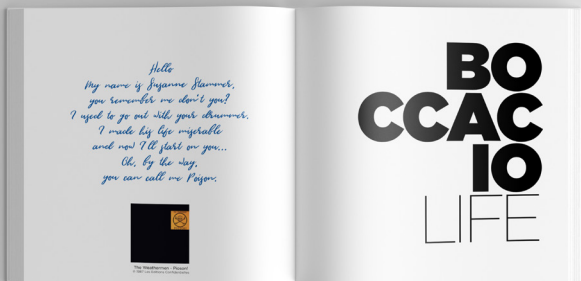 Hello
My name is Suzanne Stammer,
you remember me don't you?
I used to go out with your drummer.
I made his life miserable
and now I'll start on you...
Oh, by the way,
you can call me Poison.
The Weathermen - Poison!
BO
CCAC
IO
LIFE